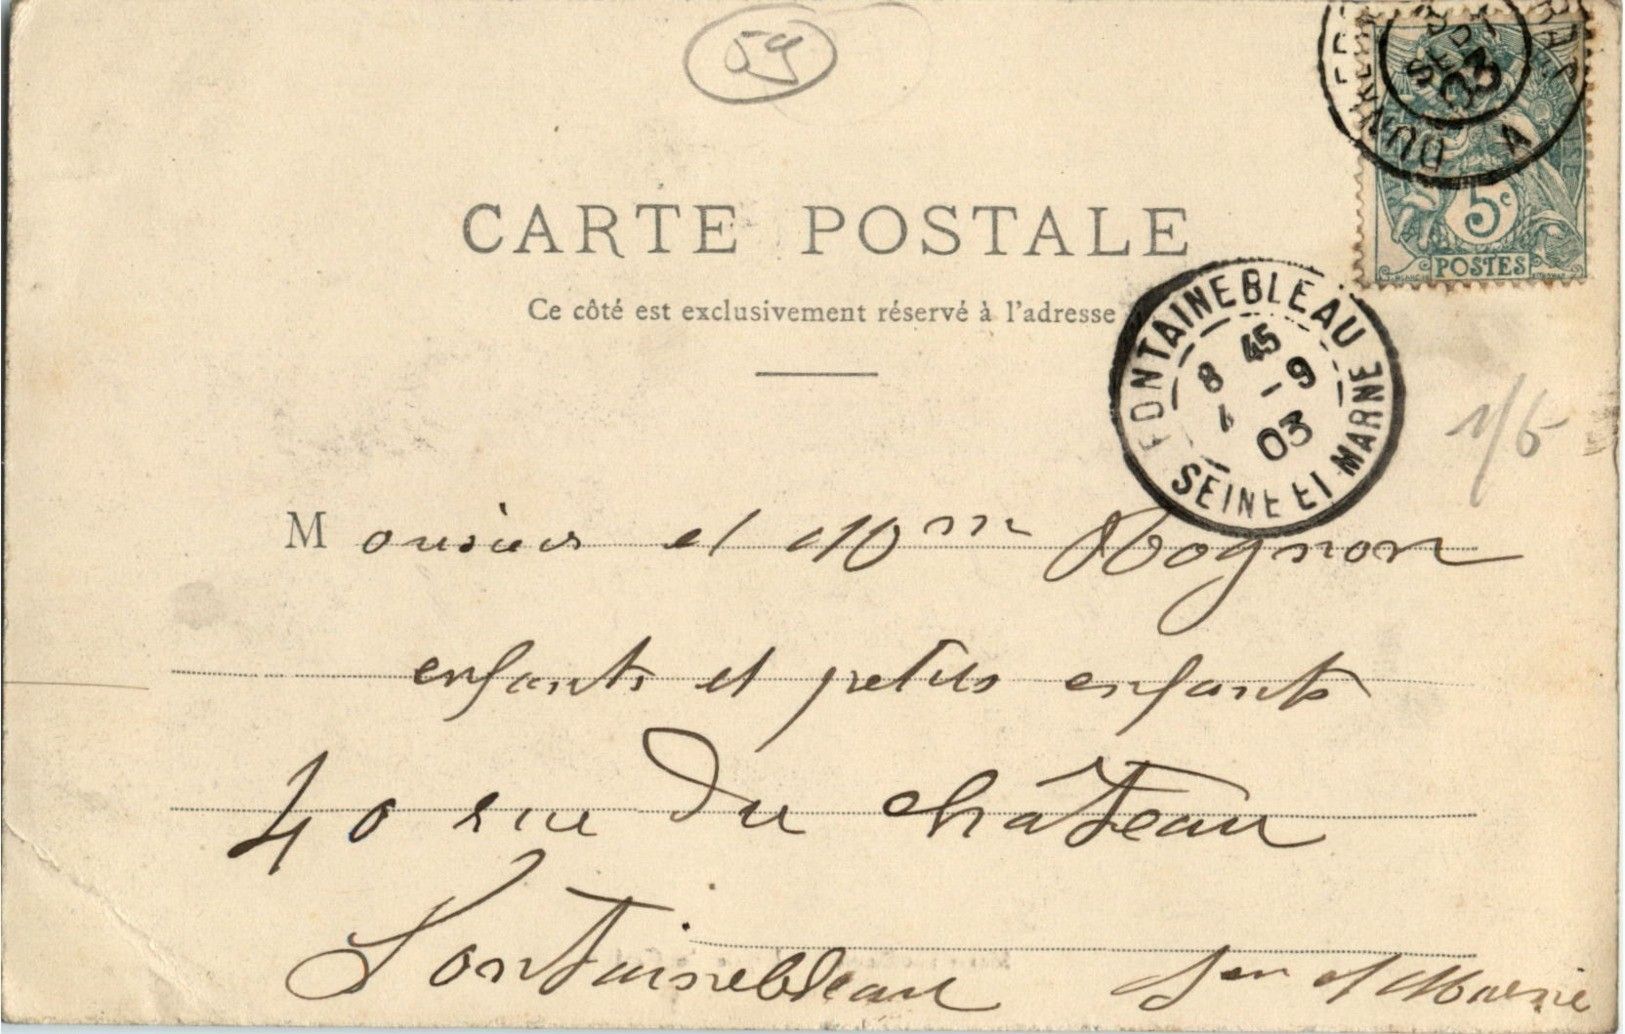 59
DUNKERQUE A
3 SEPT 03
5c
POSTES
CARTE POSTALE
Ce côté est exclusivement réservé à l'adresse
FONTAINEBLEAU
8 45
-9
03
SEINE ET MARNE
1/6
Monsieur et Mme Rognon
enfants et petits enfants
40 rue du château
Fontainebleau Sein et Marne